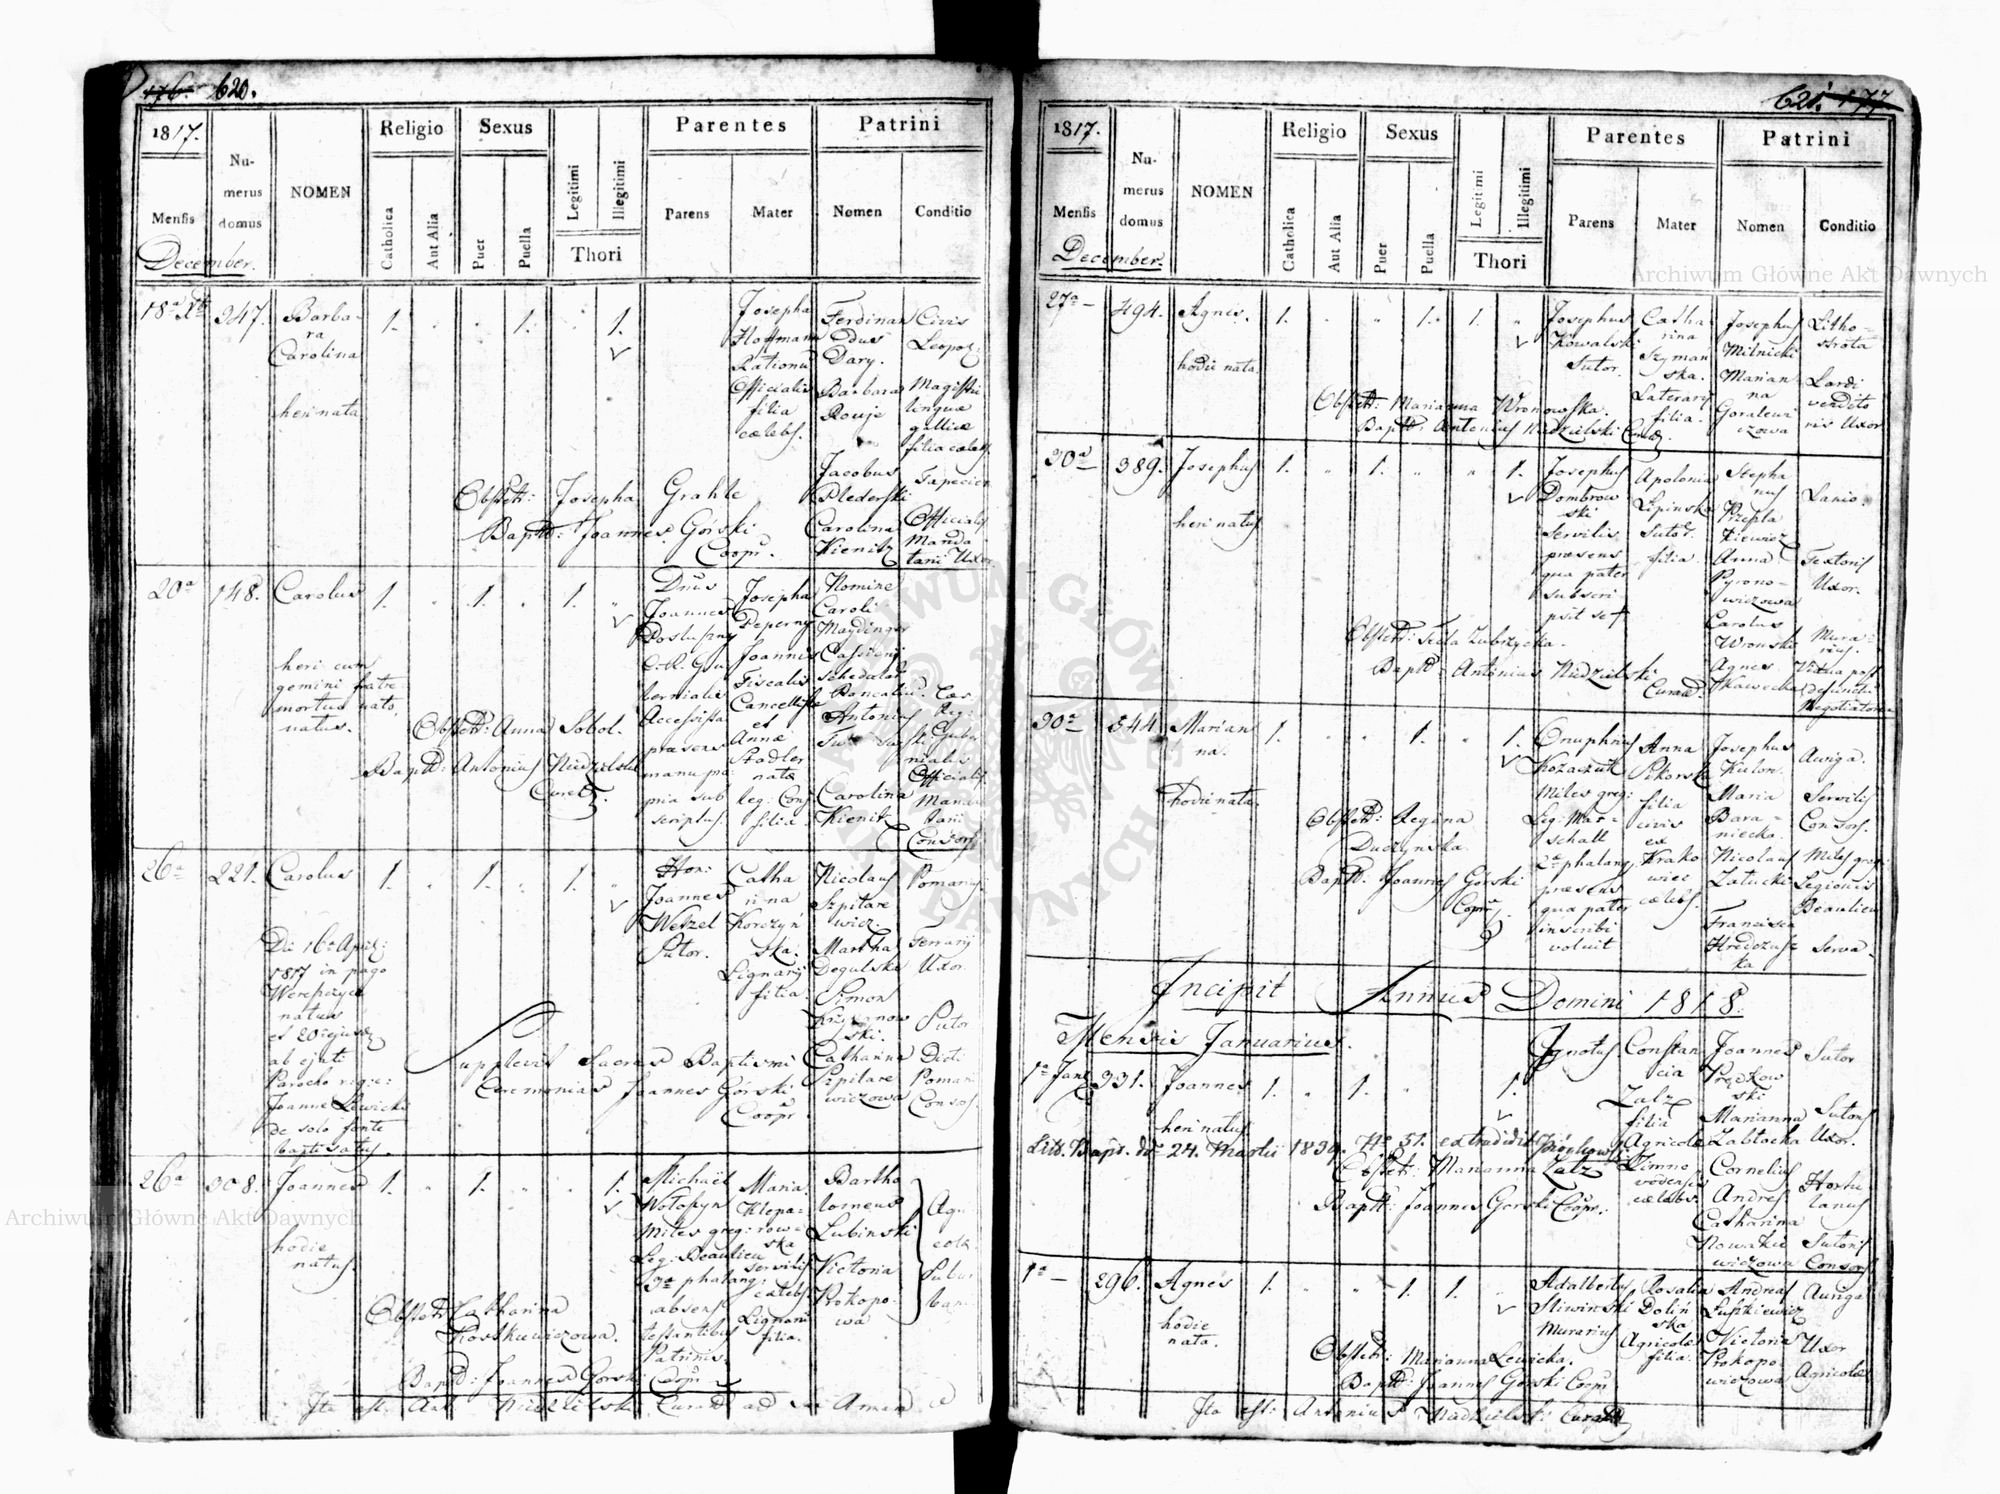 176. 620.
1817.
Nu-
merus
domus
NOMEN
Religio
Sexus
Parentes
Patrini
Mensis
Catholica
Aut Alia
Puer
Puella
Legitimi
Illegitimi
Thori
Parens
Mater
Nomen
Conditio
December.
18ª Xb
347.
Barba-
ra
Carolina
heri nata
1.
1.
1.
Josepha
Hoffmann
Rationu
Officialis
filia
cælebs.
Ferdinan
dus
Dary.
Barbara
Rouje
Jacobus
Plederski
Carolina
Kienitz
Civis
Leopol:
Magistri
linguæ
gallicæ
filia cælebs
Tapecier
Officialis
Manda
tarii Uxor
Obstetr: Josepha Grahle
Baptd: Joannes Górski
Coopr.
20ª
148.
Carolus
heri cum
gemini fratre
mortuo nato,
natus.
1.
1.
1.
Dnus
Joannes
Postupny
C.R. Gu
bernialis
Accessista
præsens
manu pro
pria sub
scriptus.
Josepha
Peperny
Joannis
Fiscalis
Cancelliste
et
Annæ
Stadler
natæ
leg: Conj
filia
Nomine
Caroli
Maydinger
Cassirii
schedalis
Bancalium
Antonius
Carolina
Kienitz
Cæs
Reg:
Guber
nialis
Officialis
Manda
tarii
Consors
Obstetr: Anna Sobol.
Baptd: Antonius Niedzielski
Curat.
26ª
221.
Carolus
Die 16ª April:
1817 in pago
Werepczyce
natus
et 20 ejusd
ab ejati
Parocho r: gr:
Joanne Lewicki
de solo fonte
baptisatus.
1.
1.
1.
Hon:
Joannes
Wetzel
Sutor.
Catha
rina
Korczyń
ska.
Lignarii
filia.
Nicolaus
Szpitare
wicz.
Martha
Dogulska
Simon
Krzyżanow
ski.
Catharina
Szpitare
wiczowa
Pomarius.
Ferrarii
Uxor
Sutor
Dicti
Pomar.
Consors.
Supplevit Sacras Baptismi
Ceremonias Joannes Górski
Coopr
26ª
308.
Joannes
hodie
natus.
1.
1.
1.
Michaël
Wołoszyn
Miles greg:
Leg: Beaulieu
3ª phalang:
absens
testantibus
Patrinis.
Maria
Klopa-
rows-
ka
servilis
cælebs
Lignarii
filia.
Bartho
lomeus
Lubinski
Victoria
Prokopo-
wa
Agri
colæ
Subur
ban.
Obstetr: Catharina
Roszkiewiczowa.
Baptd: Joannes Górski Coopr
Ita est. Ant. Niedzielski Curatus ad S.
621. 177
1817.
Nu-
merus
domus
NOMEN
Religio
Sexus
Parentes
Patrini
Mensis
Catholica
Aut Alia
Puer
Puella
Legitimi
Illegitimi
Thori
Parens
Mater
Nomen
Conditio
December.
27ª
494.
Agnes.
hodie nata.
1.
1.
1.
Josephus
Kowalski
Sutor.
Catha
rina
Szyman
ska.
Laterarii
filia.
Josephus
Milnicki
Marian
na
Goralewi
czowa
Litho-
strota
Lardi
vendito
ris Uxor
Obstetr: Marianna Wronowska.
Baptd: Antonius Niedzielski Curat.
30ª
389.
Josephus
heri natus
1.
1.
1.
Josephus
Dombrow
ski
Servilis
præsens
qua pater
subscri
psit se +
Apolonia
Lipinska
Sutor.
filia.
Stepha
nus
Przepla
kiewicz
Anna
Pyrono-
wiczowa
Carolus
Wronski
Agnes
Kawecka
Lanio.
Textoris
Uxor.
Mura-
rius.
Vidua post
defunctu
Negotiatore
Obstetr: Tecla Zubrzycka.
Baptd: Antonius Niedzielski
Curat.
30ª
544
Marian
na.
hodie nata.
1.
1.
1.
Onuphrius
Kozaczuk
Miles greg:
Leg: Mar-
schall
2ª phalang.
præsens
qua pater
inscribi
voluit
Anna
Sikorska
filia
civis
ex
Krako
wiec
cælebs.
Josephus
Kulon.
Maria
Bara-
niecka.
Nicolaus
Zatucki
Francisca
Hreczusz
ka
Auriga.
Servilis
Consors.
Miles greg:
Legionis
Beaulieu
Serva
Obstetr: Regina
Duczyńska.
Baptd: Joannes Górski
Coopr.
Incipit Annus Domini 1818.
Mensis Januarius.
1ª Jan
331.
Joannes
heri natus
1.
1.
1.
Ignotus
Constan
cia
Zalz
filia
Agricolæ
Zimno
vodensis
cælebs.
Joannes
Prędkow
ski
Marianna
Zabłocka
Cornelius
Andres
Catharina
Nowakie
wiczowa
Sutor
Sutoris
Uxor.
Hortu-
lanus
Sutoris
Consors
Litt. Bapt. dto 24. Martii 1839. No 51. extradidit
Obstetr: Marianna Zalz
Baptd: Joannes Gorski Coopr.
1ª
296.
Agnes
hodie
nata.
1.
1.
1.
Adalbertus
Sliwinski
Murarius
Rosalia
Doliń
ska
Agricolæ
filia.
Andreas
Lupkiewicz
Victoria
Prokopo
wiczowa
Auriga
Uxor
Agricolæ
Obstetr: Marianna Lewicka.
Baptd: Joannes Gorski Coopr
Ita est: Antonius Nadzielski Curat.
Archiwum Główne Akt Dawnych
Archiwum Główne Akt Dawnych
ARCHIWUM GŁÓWNE AKT DAWNYCH